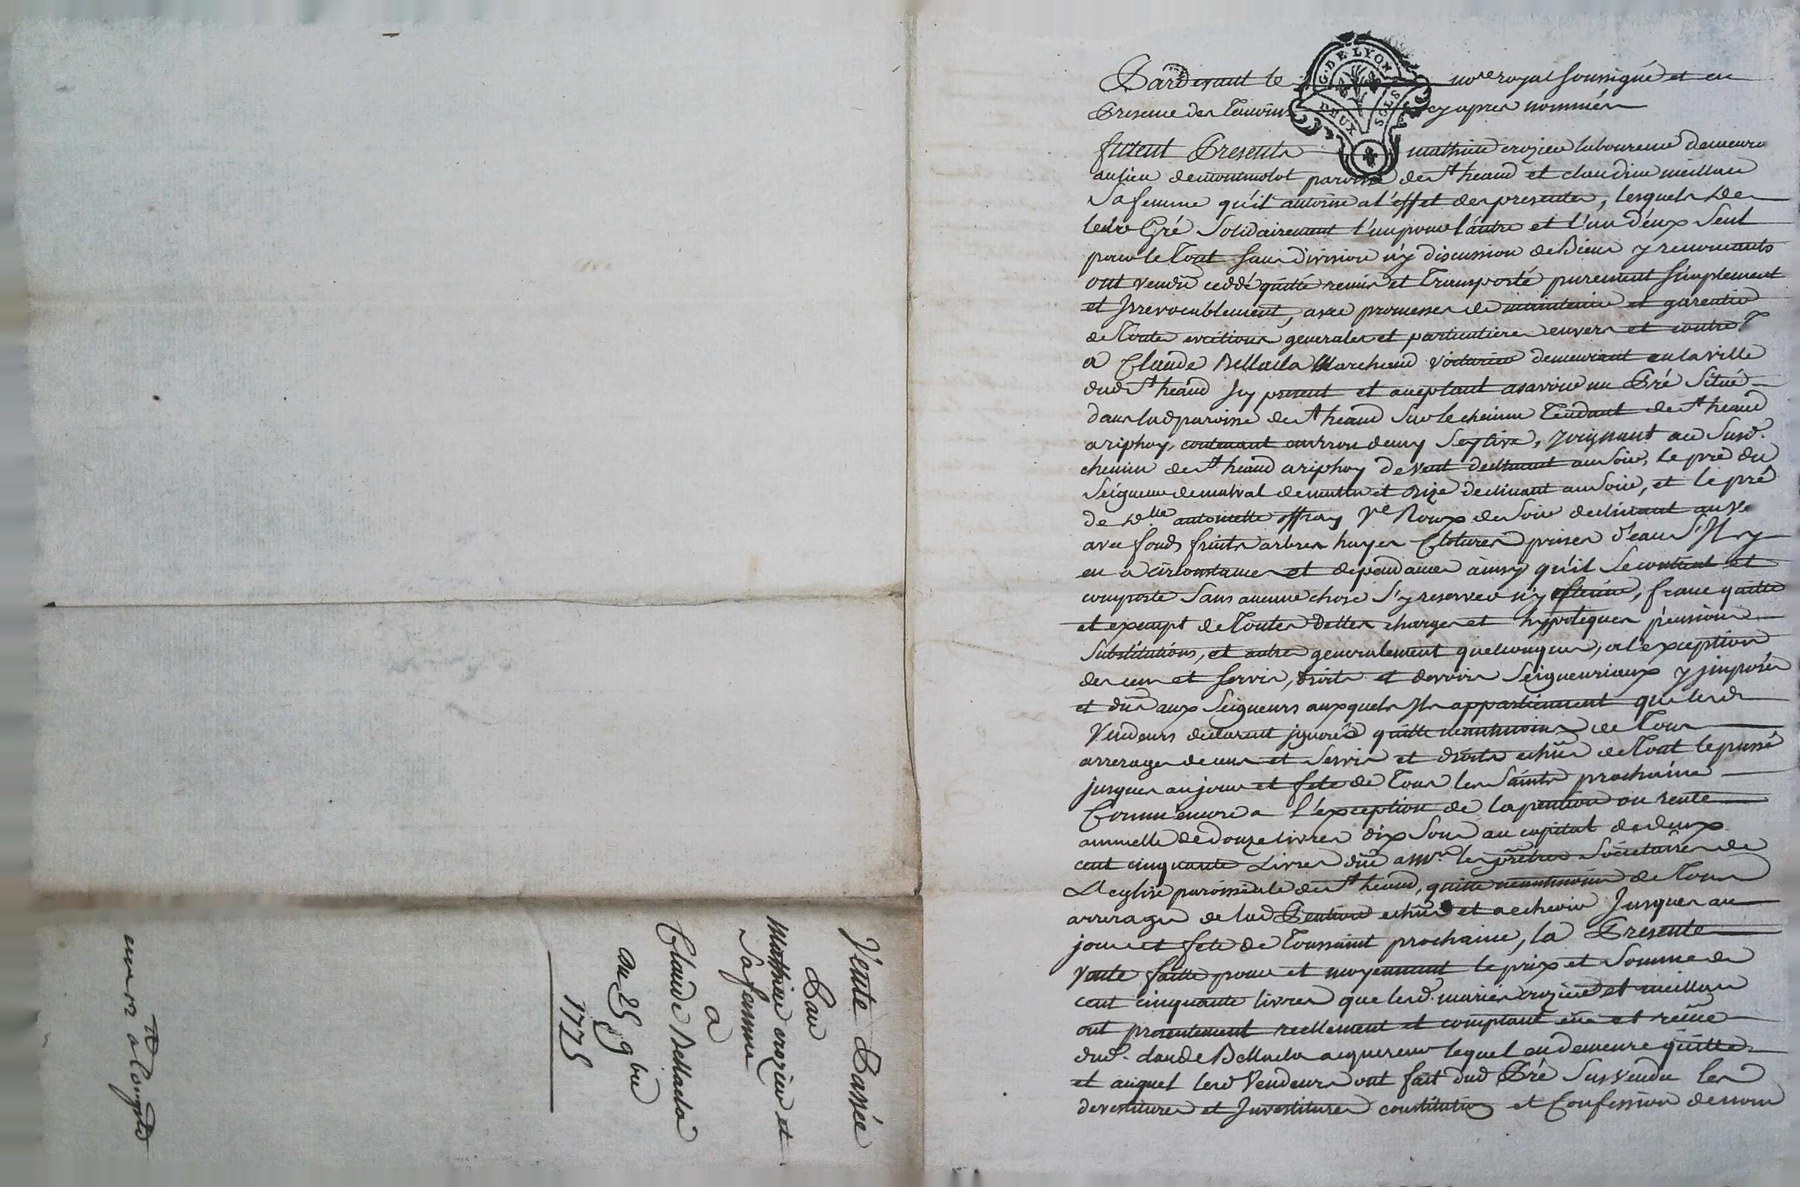 Vente Passée
Par
Mathieu crozier et
Sa femme
a
Claude Bellacla
au 25 9bre
1775
G. DE LYON
DEUX SOLS
Pardevant le no.re royal soussigné et en
Presence des temoins cy apres nommés
furent Presents mathieu crozier laboureur demeurant
au lieu de montmolot paroisse de St heand et claudine meillan
Sa femme qu'il autorise a l'effet des presentes, lesquels de
leur Gré Solidairement l'un pour l'autre et l'un d'eux Seul
pour le Tout sans division n'y discussion de Biens y renonceants
ont vendu ceddé quitté remis et Transporté purement simplement
et Irrevocablement, avec promesse de maintenir et garentir
de Toutes evictions generales et particulieres envers et contre T
a Claude Bellacla Marchand voiturier demeurant en la ville
dud St heand Icy present et acceptant asavoir un Pré Situé
dans lad paroisse de St heand Sur le chemin Tendant de St heand
a riphoy, contenant environ demy Seytive, joignant au Susd.
chemin de St heand a riphoy de vent declinant au Soir, le pré du
Seigneur de malval de matin et Bize declinant au Soir, et le pré
de dlle antoinette offray Ve Roux de Soir declinant au Ve
avec fonds fruits arbres hayes Clotures prises d'eau S'Il y
en a circonstances et dependances ainsy qu'il Se contient et
comporte Sans aucune chose S'y reserver n'y retenir, franc quitte
et exempt de Toutes dettes charges et hypoteques pensions
Substitutions, et autres generalement quelconques, a l'exception
des cens et servis, droits et devoirs Seigneuriaux y imposés
et dûs aux Seigneurs auxquels Ils appartiennent que lesd
Vendeurs declarent ignorer quitte neantmoins de Tous
arrerages de cens et Servis et droits echus de Tout le passé
jusques au jour et fete de Tous les Saints prochaine
Comm'encore a l'exception de la pention ou rente
annuelle de douze livres dix Sous au capital de deux
cent cinquante Livres due a mrs les prêtres Societaires de
L'eglise paroissiale de St heand, quitte neantmoins de Tous
arrerages de lad Pention echus et a echeoir Jusques au
jour et fete de Toussaint prochaine, la Presente
Vente faitte pour et moyennant le prix et Somme de
cent cinquante livres que lesd. mariés crozier et meillan
ont presentement reellement et comptant eûe et reçue
dud. claude Bellacla acquereur lequel en demeure quitte
et auquel lesd Vendeurs ont fait dud Pré Sus vendu les
devestitures et Investitures constitution et Confession de nom